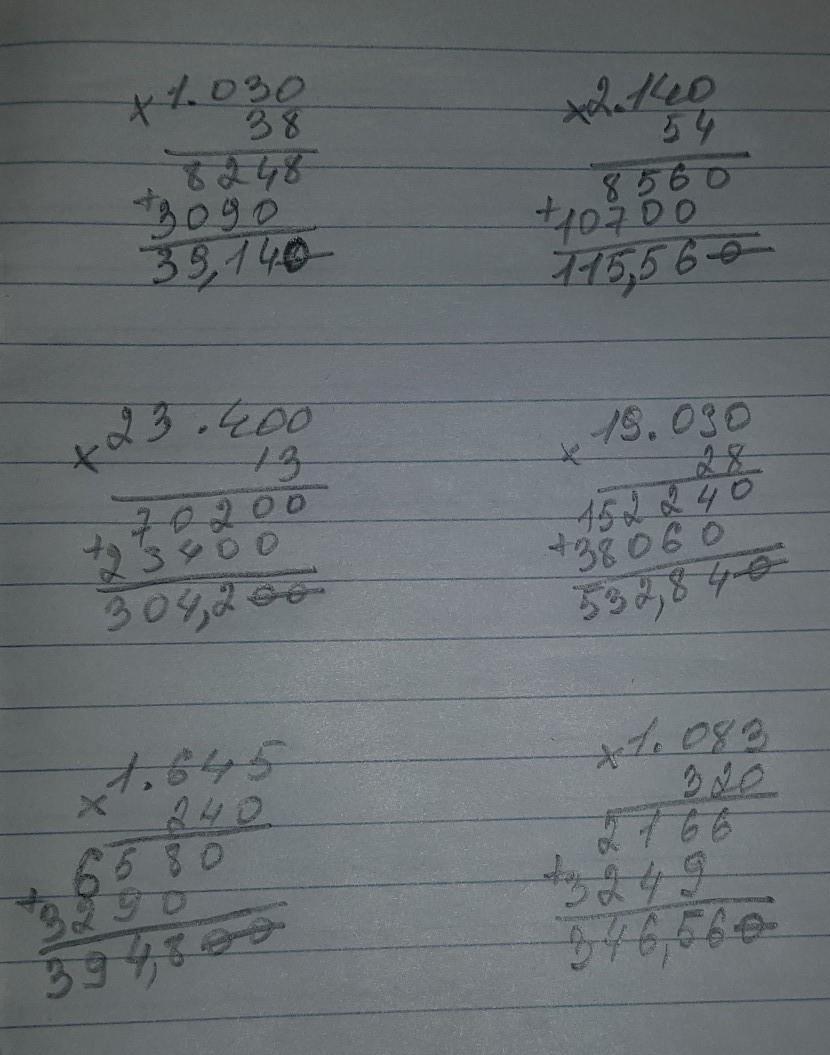 x 1.030
38
8248
+3090
39,140
x 2.140
54
8560
+10700
115,560
x 23.400
13
70200
+23400
304,200
x 19.030
28
152240
+38060
532,840
x 1.645
240
6580
+3290
394,800
x 1.083
320
2166
+3249
346,560